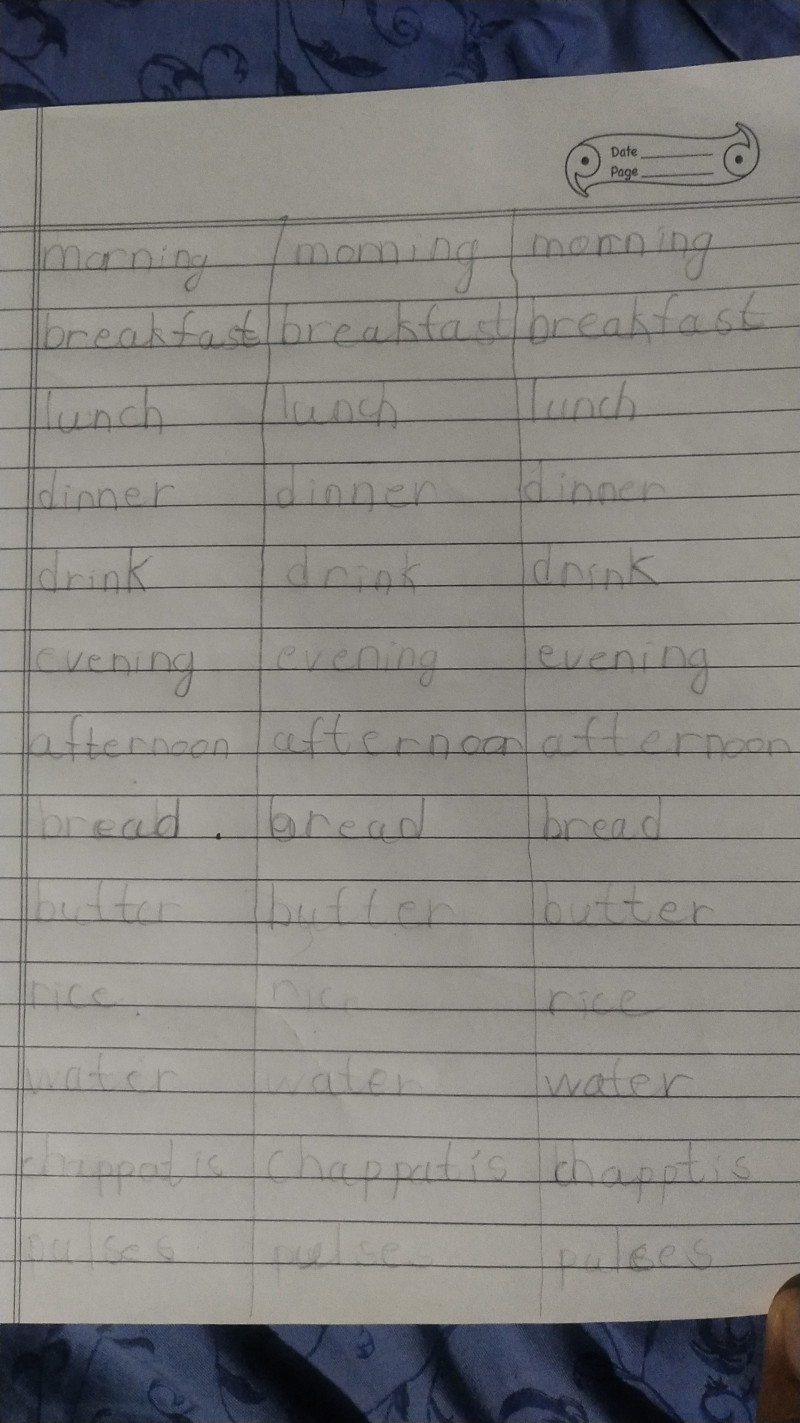 Date
Page
morning morning morning
breakfast breakfast breakfast
lunch lunch lunch
dinner dinner dinner
drink drink drink
evening evening evening
afternoon afternoon afternoon
bread . bread bread
butter butter butter
rice rice
water water water
chappatis chappatis chapptis
pulses pulses